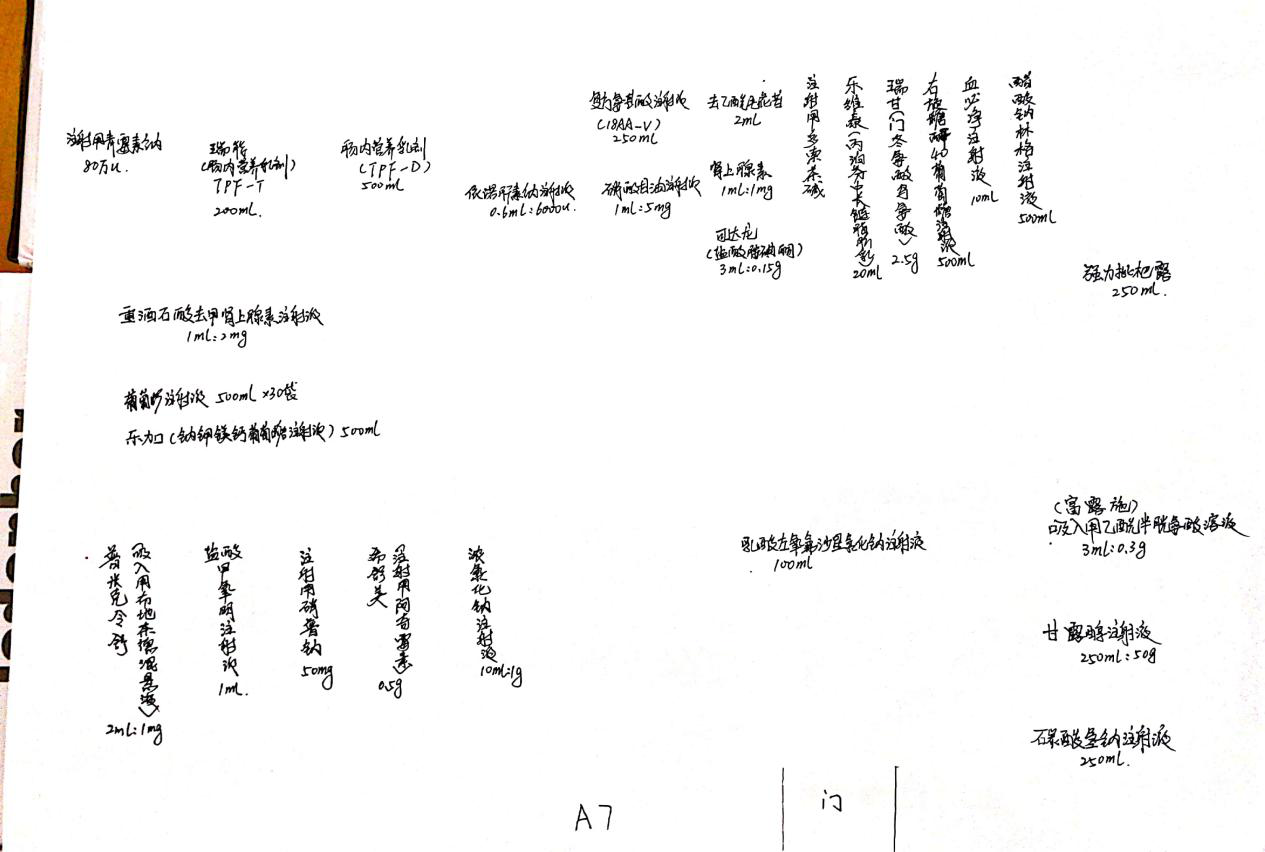 注射用青霉素钠
80万u.
瑞能
(肠内营养乳剂)
TPF-T
200mL.
肠内营养乳剂
(TPF-D)
500mL
依诺肝素钠注射液
0.6mL:6000u.
复方氨基酸注射液
(18AA-V)
250mL
硝酸甘油注射液
1mL:5mg
去乙酰毛花苷
2mL
肾上腺素
1mL:1mg
可达龙
(盐酸胺碘酮)
3mL:0.15g
注射用多索茶碱
乐维泰(丙泊酚中长链脂肪乳)
20mL
瑞甘(门冬氨酸鸟氨酸)
2.5g
右旋糖酐40葡萄糖注射液
500mL
血必净注射液
10mL
醋酸钠林格注射液
500mL
强力枇杷露
250mL.
重酒石酸去甲肾上腺素注射液
1mL:2mg
葡萄糖注射液 500mL ×30袋
乐加(钠钾镁钙葡萄糖注射液) 500mL
普米克令舒
吸入用布地奈德混悬液)
2mL:1mg
盐酸甲氧明注射液
1mL.
注射用硝普钠
50mg
希舒美
注射用阿奇霉素)
0.5g
浓氯化钠注射液
10mL:1g
乳酸左氧氟沙星氯化钠注射液
100mL
(富露施)
吸入用乙酰半胱氨酸溶液
3mL:0.3g
甘露醇注射液
250mL:50g
碳酸氢钠注射液
250mL.
A7
门